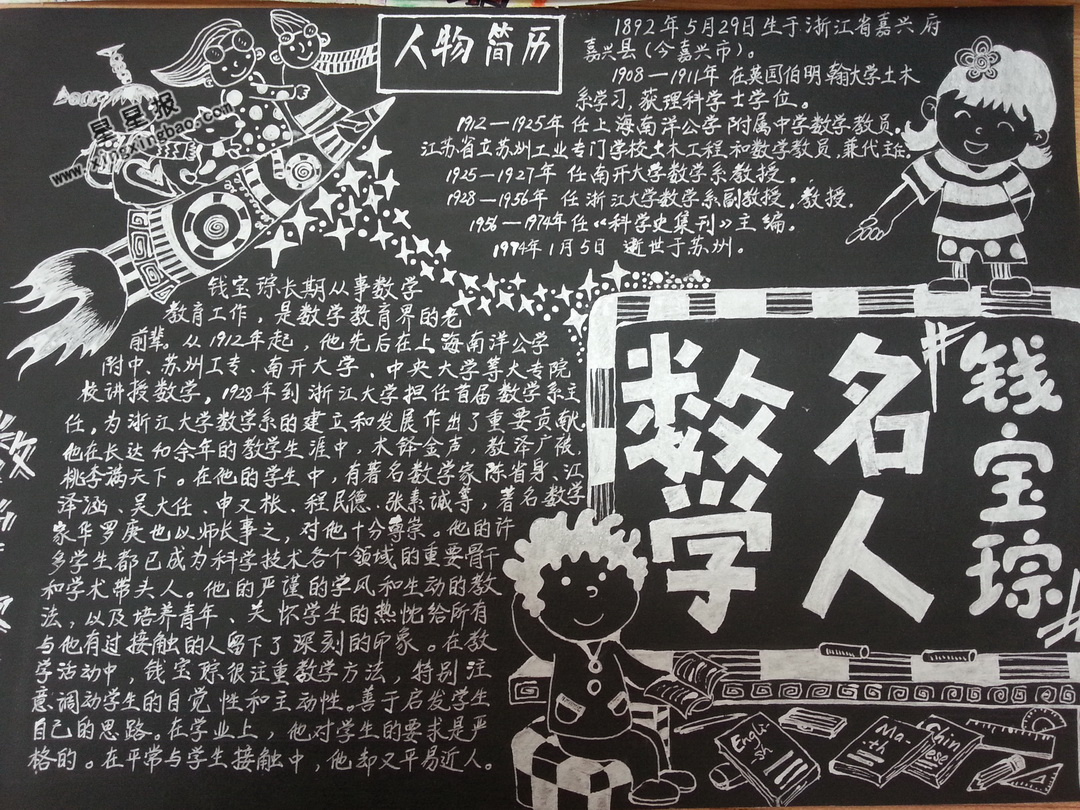 人物简历
1892年5月29日生于浙江省嘉兴府
嘉兴县(今嘉兴市)。
1908—1911年 在英国伯明翰大学土木
系学习,获理科学士学位。
1912—1925年 任上海南洋公学附属中学数学教员。
江苏省立苏州工业专门学校土木工程和数学教员,兼代主任
1925—1927年 任南开大学数学系教授。
1928—1956年 任浙江大学数学系副教授,教授.
1956—1974年任《科学史集刊》主编。
1974年1月5日 逝世于苏州.
星星报
www.xingxingbao.com
钱宝琮长期从事数学
教育工作,是数学教育界的老
前辈.从1912年起,他先后在上海南洋公学
附中、苏州工专、南开大学、中央大学等大专院
校讲授数学,1928年到浙江大学担任首届数学系主
任,为浙江大学数学系的建立和发展作出了重要贡献.
他在长达40余年的教学生涯中,木铎金声,教泽广被,
桃李满天下。在他的学生中,有著名数学家陈省身、江
泽涵、吴大任、申又枨、程民德、张素诚等,著名数学
家华罗庚也以师长事之,对他十分尊崇。他的许
多学生都已成为科学技术各个领域的重要骨干
和学术带头人。他的严谨的学风和生动的教
法,以及培养青年、关怀学生的热忱给所有
与他有过接触的人留下了深刻的印象。在教
学活动中,钱宝琮很注重教学方法,特别注
意调动学生的自觉性和主动性。善于启发学生
自己的思路。在学业上,他对学生的要求是严
格的。在平常与学生接触中,他却又平易近人。
数学
名人
钱宝琮
Engli
sh
Ma-
th
Chin
ese